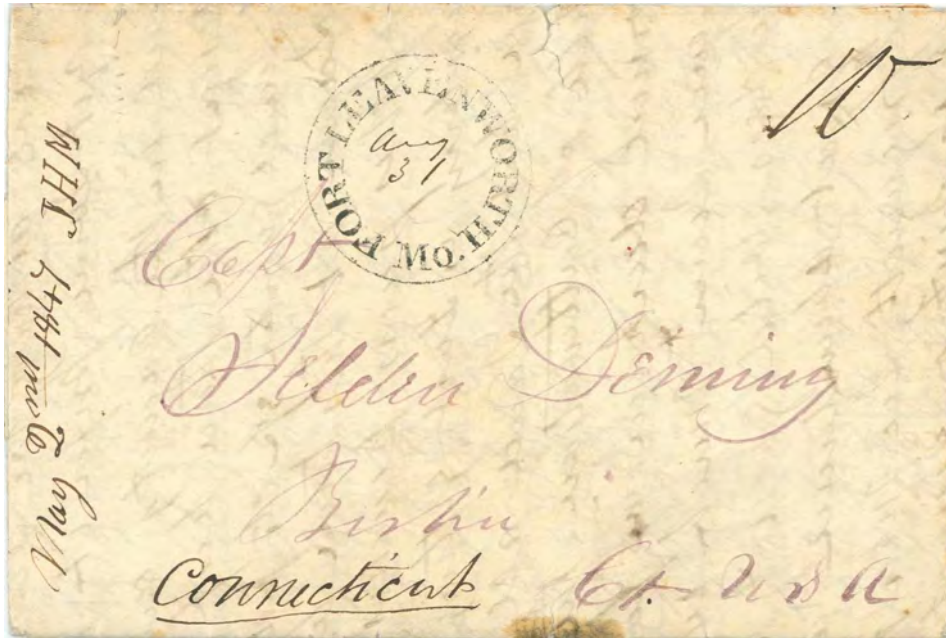 10
FORT LEAVENWORTH. MO.
Aug
31
Capt
Selden Deming
Berlin
Connecticut Ct. U S A
May 2nd 1847 JHM